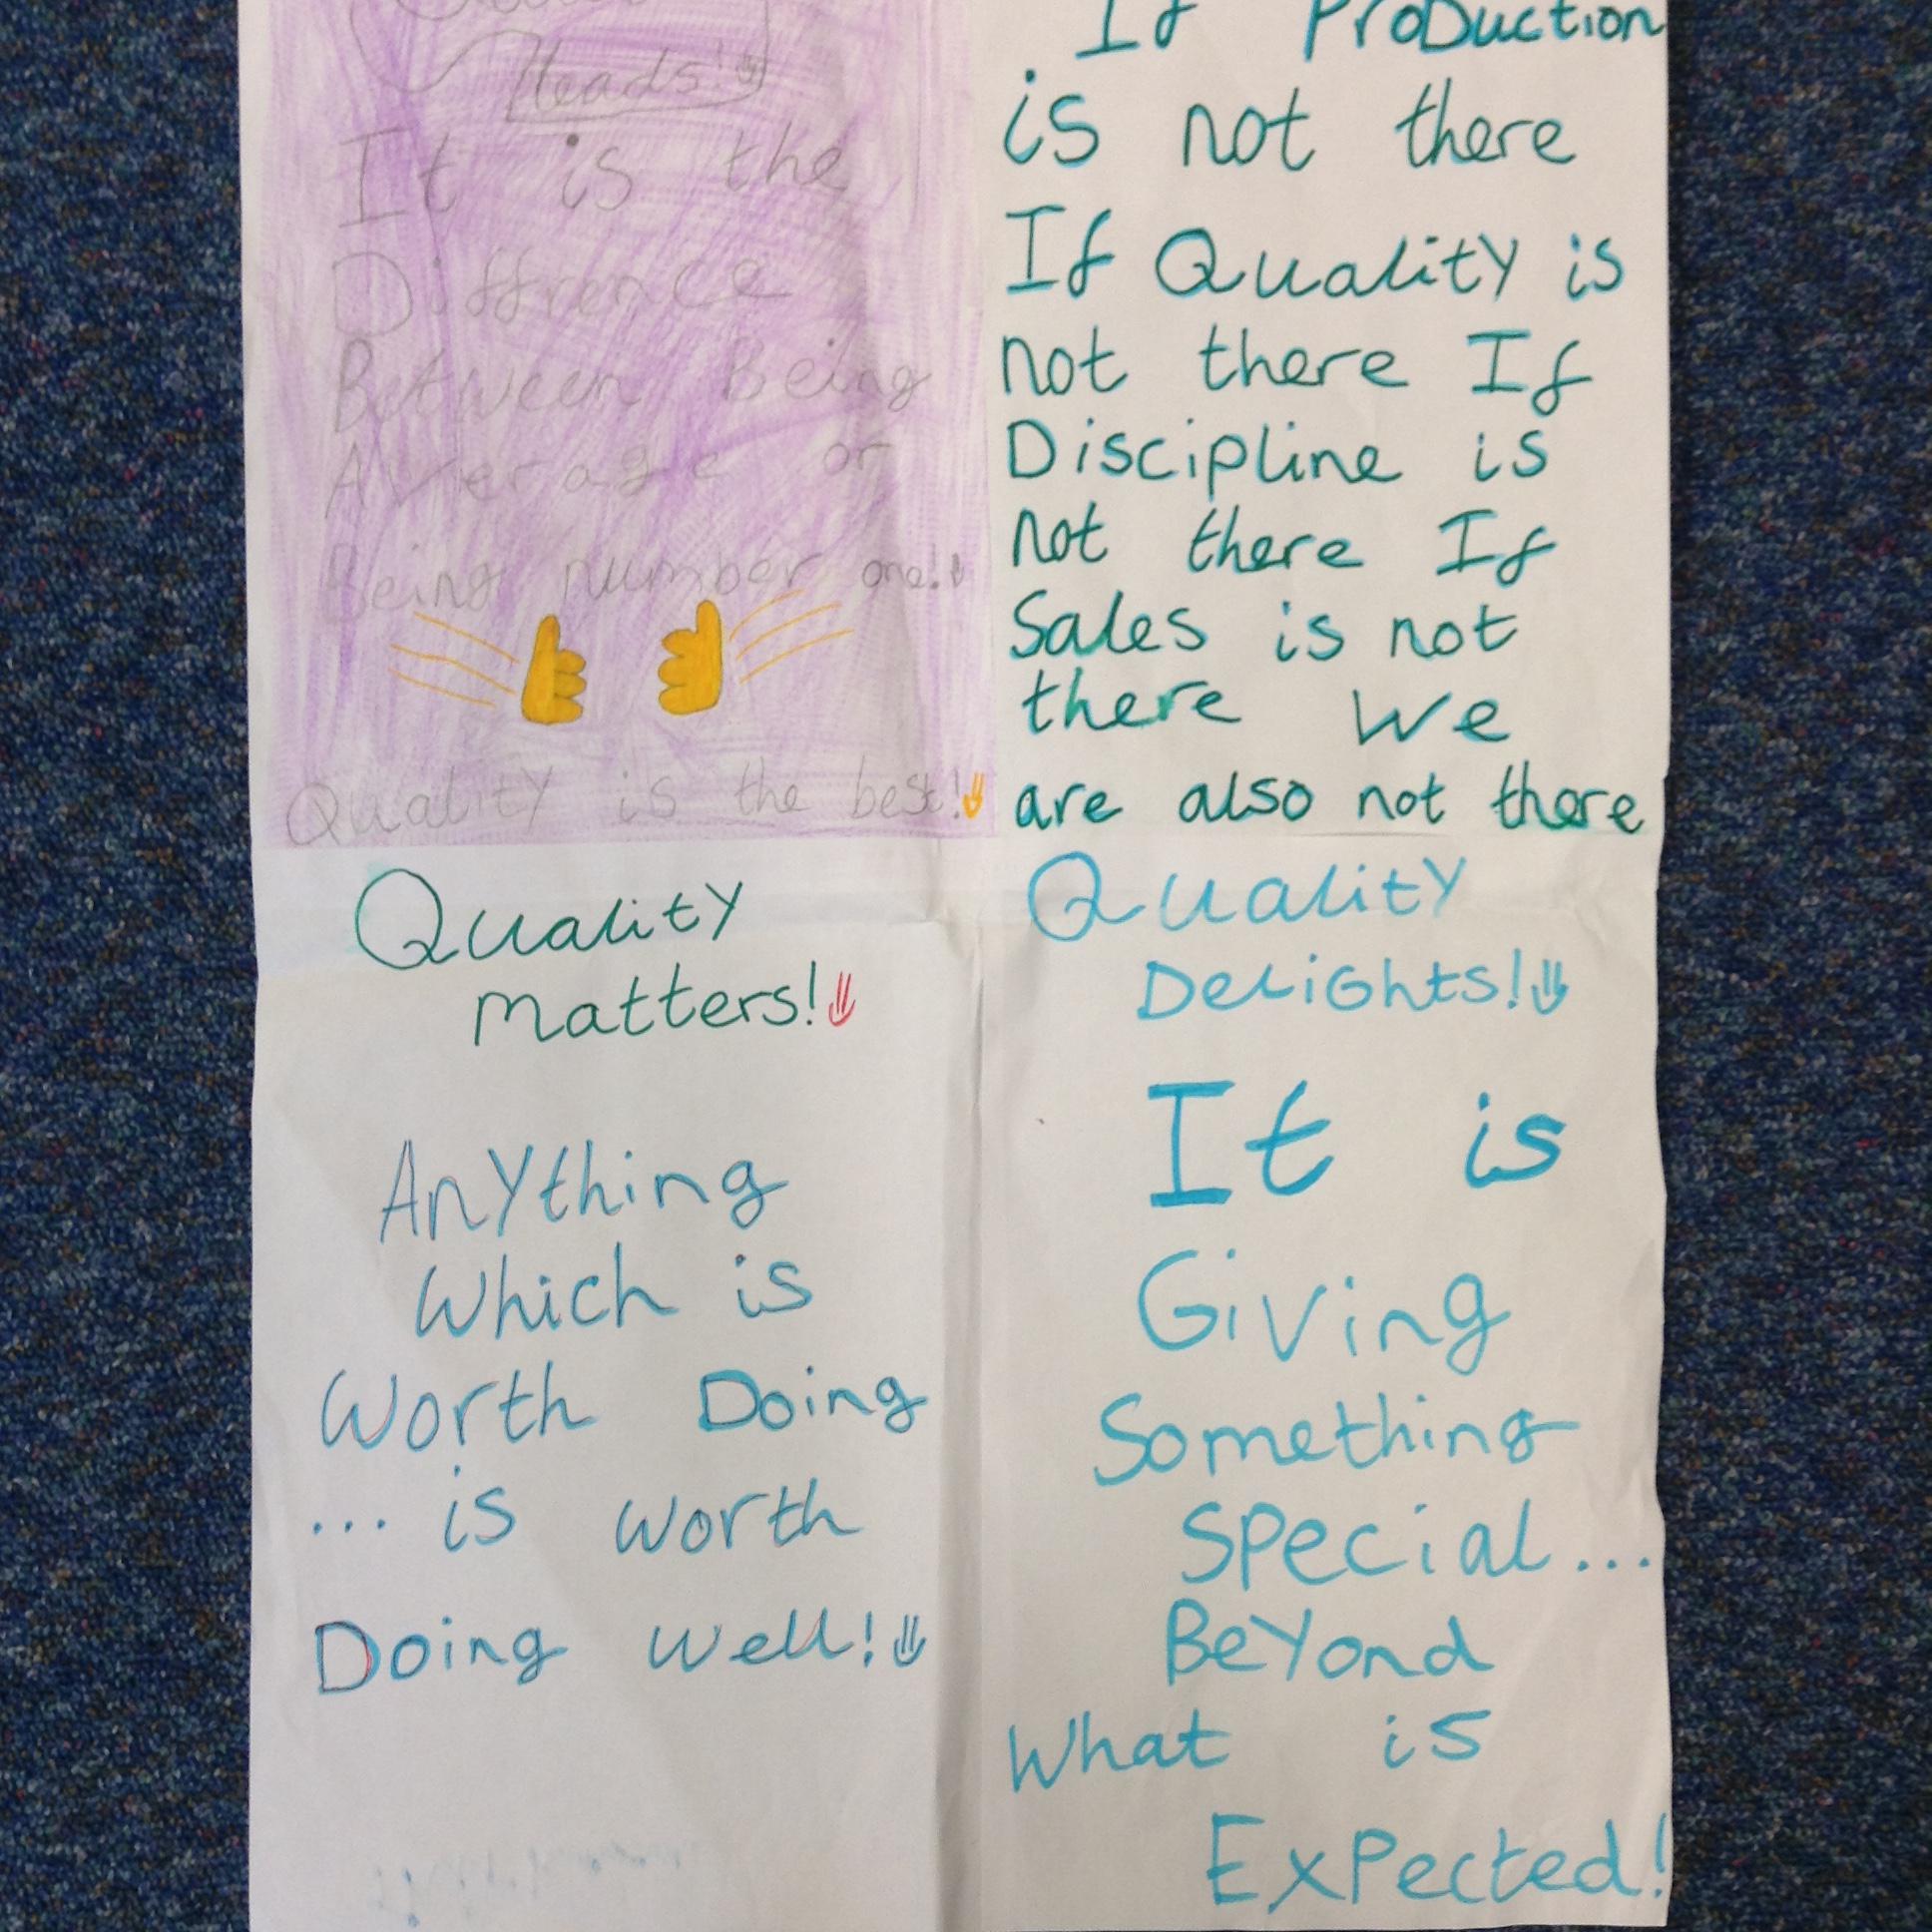 Heads!
It is the
Diffrence
Between Being
Average or
Being number one!
Quality is the best!
If Production
is not there
If Quality is
not there If
Discipline is
not there If
Sales is not
there We
are also not there
Quality
Matters!
Anything
Which is
Worth Doing
... is worth
Doing well!
Quality
Delights!
It is
Giving
Something
Special...
Beyond
What is
Expected!